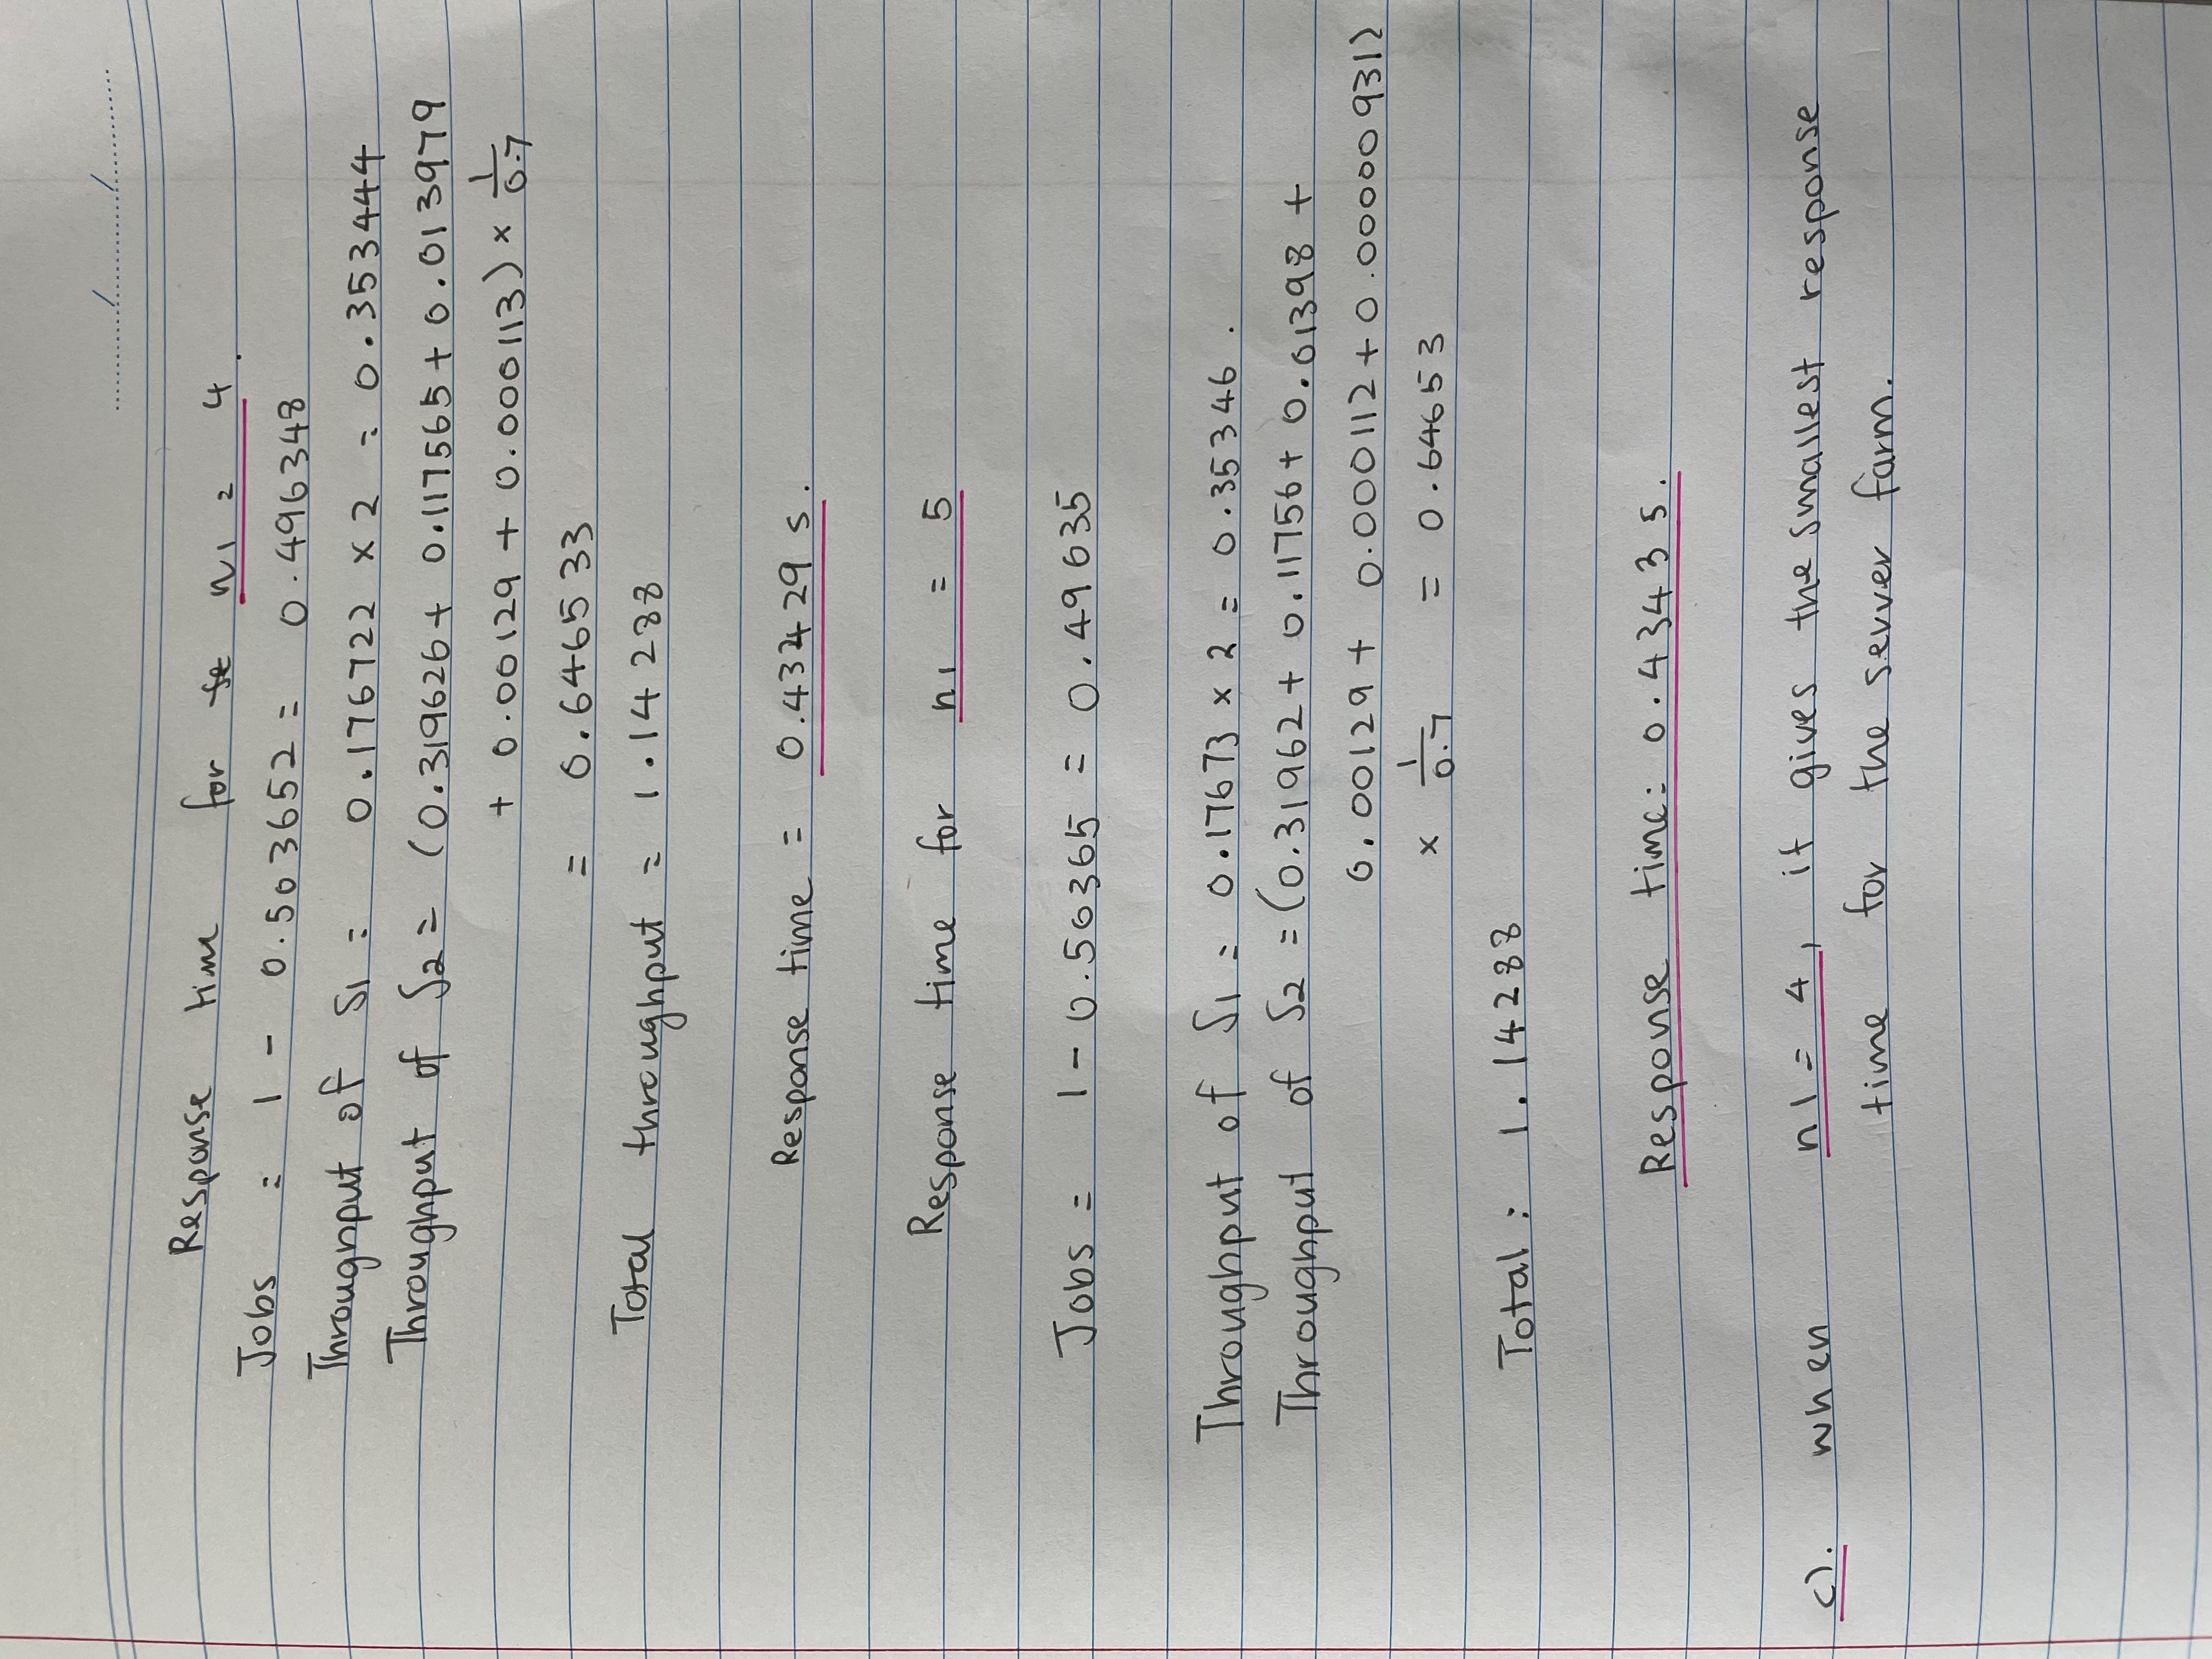 Response time for n1 = 4.
Jobs = 1 - 0.503652 = 0.496348
Throughput of S1 = 0.176722 x 2 = 0.353444
Throughput of S2 = (0.319626 + 0.117565 + 0.013979
+ 0.00129 + 0.000113) x 1/0.7
= 0.646533
Total throughput = 1.14288
Response time = 0.433429 s.
Response time for n1 = 5
Jobs = 1 - 0.50365 = 0.49635
Throughput of S1 = 0.17673 x 2 = 0.35346.
Throughput of S2 = (0.31962 + 0.11756 + 0.01398 +
0.00129 + 0.000112 + 0.000009312
x 1/0.7 = 0.64653
Total: 1.14288
Response time: 0.43435.
c). when n1 = 4, it gives the smallest response
time for the server farm.